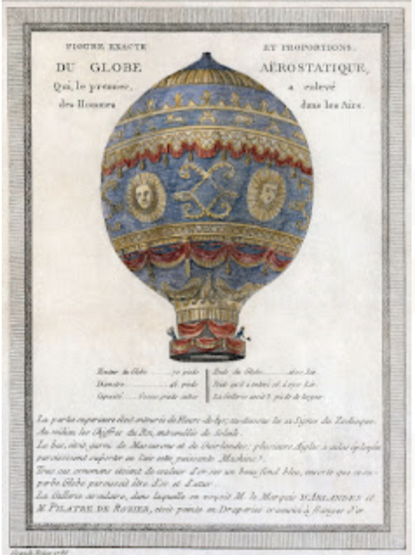 FIGURE EXACTE ET PROPORTIONS,
DU GLOBE AËROSTATIQUE,
Qui, le premier, a enlevé
des Hommes dans les Airs.
Hauteur du Globe 70 pieds
Diametre 46 pieds
Capacité 60000 pieds cubes
Poids du Globe
La Gallerie avoit 3 pieds de largeur
La partie supérieure étoit entourée de Fleurs-de-lys, au-dessous les 12 Signes du Zodiaque.
Au milieu les Chiffres du Roi, entremêlés de Soleils.
Le bas étoit garni de Mascarons et de Guirlandes; plusieurs Aigles à ailes éployées
paroissoient supporter en l'air cette puissante Machine.
Tous ces ornemens étoient de couleur d'or sur un beau fond bleu, ensorte que ce su-
perbe Globe paroissoit être d'or et d'azur.
La Gallerie circulaire, dans laquelle on voyoit M. le Marquis D'ARLANDES et
M. PILATRE DE ROZIER, étoit peinte en Draperies cramoisi à franges d'or.